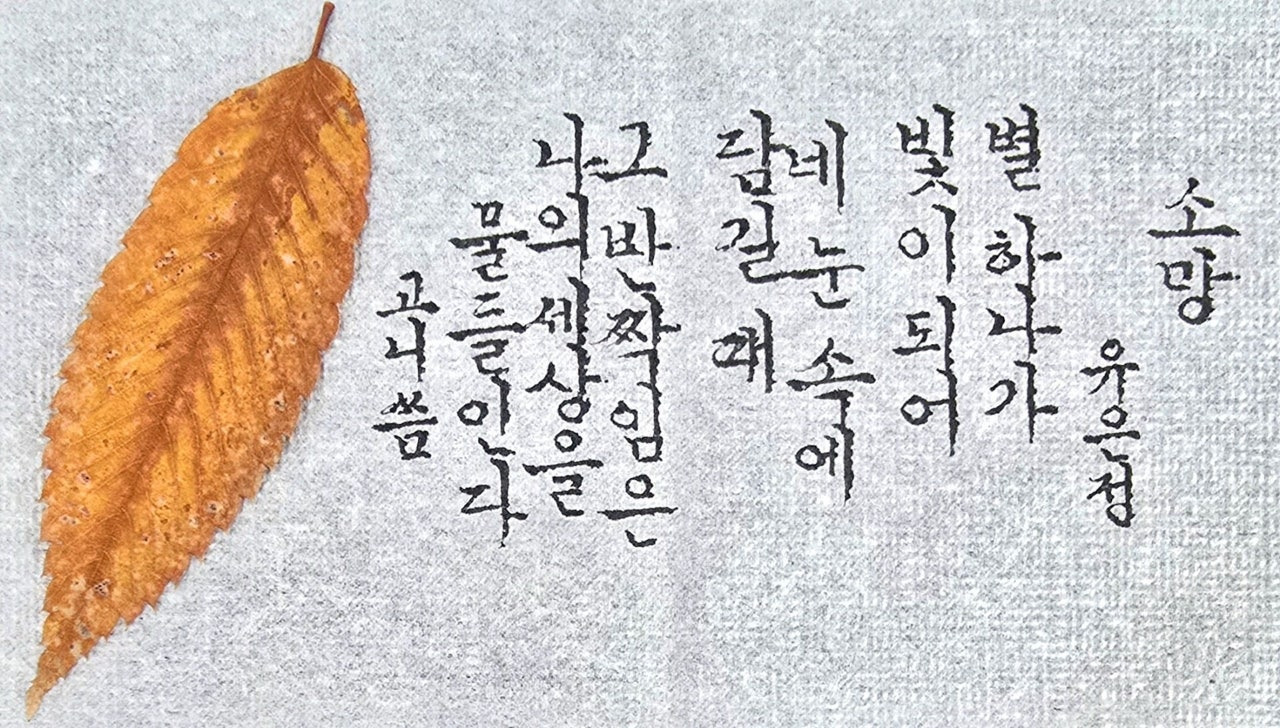 소망
유은정
별 하나가
빛이 되어
네 눈 속에
담길 때
그 반짝임은
나의 세상을
물들인다
고니 씀